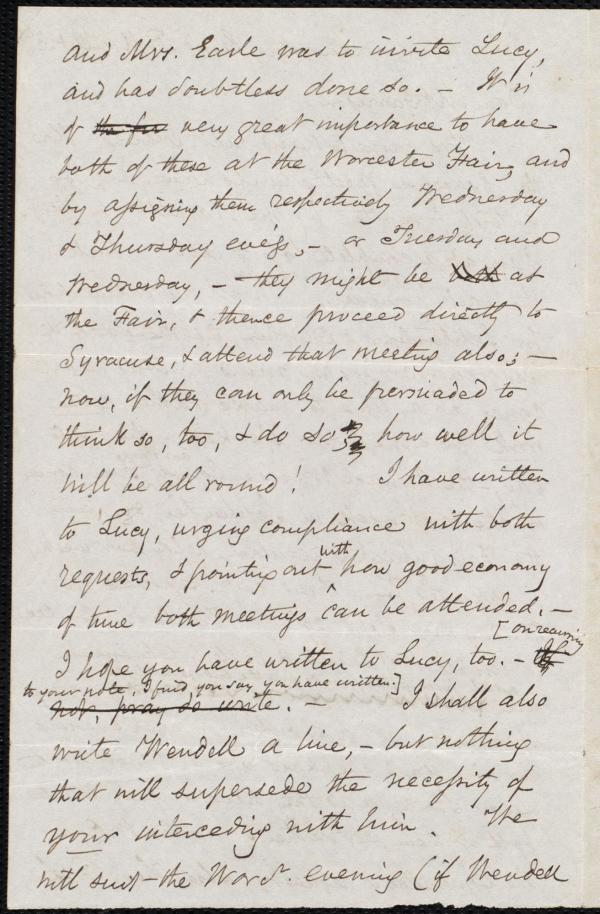 and Mrs. Earle was to invite Lucy,
and has doubtless done so. – It is
of the fir very great importance to have
both of these at the Worcester Fair, and
by assigning them respectively Wednesday
& Thursday eve'gs, – or Tuesday and
Wednesday, – they might be both at
the Fair, & thence proceed directly to
Syracuse, & attend that meeting also; –
now, if they can only be persuaded to
think so, too, & do so, how well it
will be all round! I have written
to Lucy, urging compliance with both
requests, & pointing out with how good economy
of time both meetings can be attended. –
[on recurring
I hope you have written to Lucy, too. – If
to your note, I find, you say, you have written.]
not, pray do write. – I shall also
write Wendell a line, – but nothing
that will supersede the necessity of
your interceding with him. We
will suit the Worc. evening (if Wendell